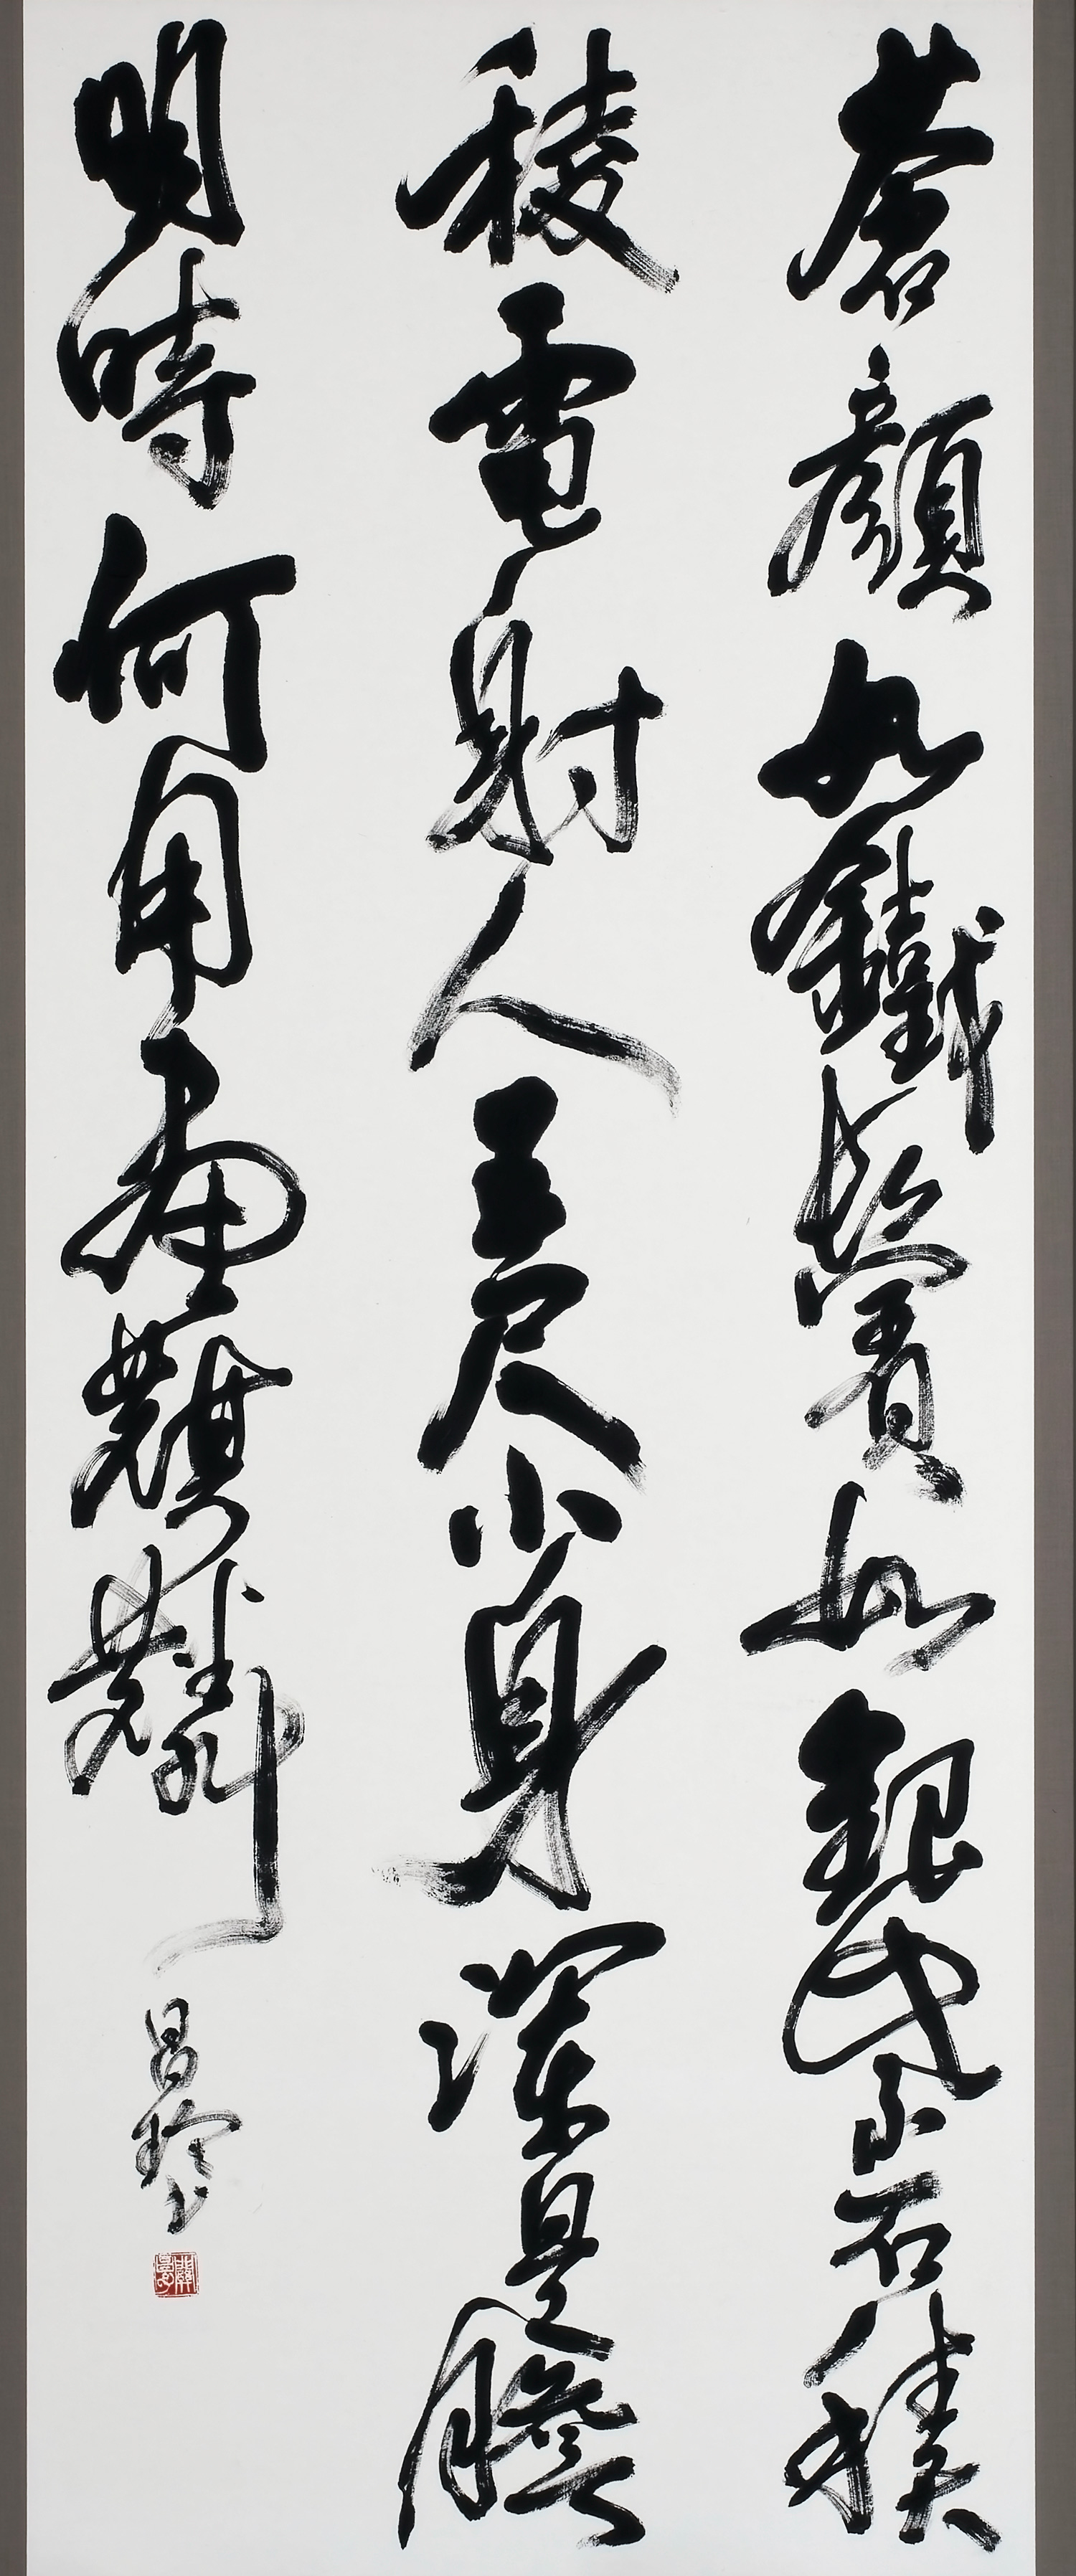 蒼顏如鐵鬢如銀紫石稜
稜電射人五尺小身渾是膽
明時何用畫麒麟
昌